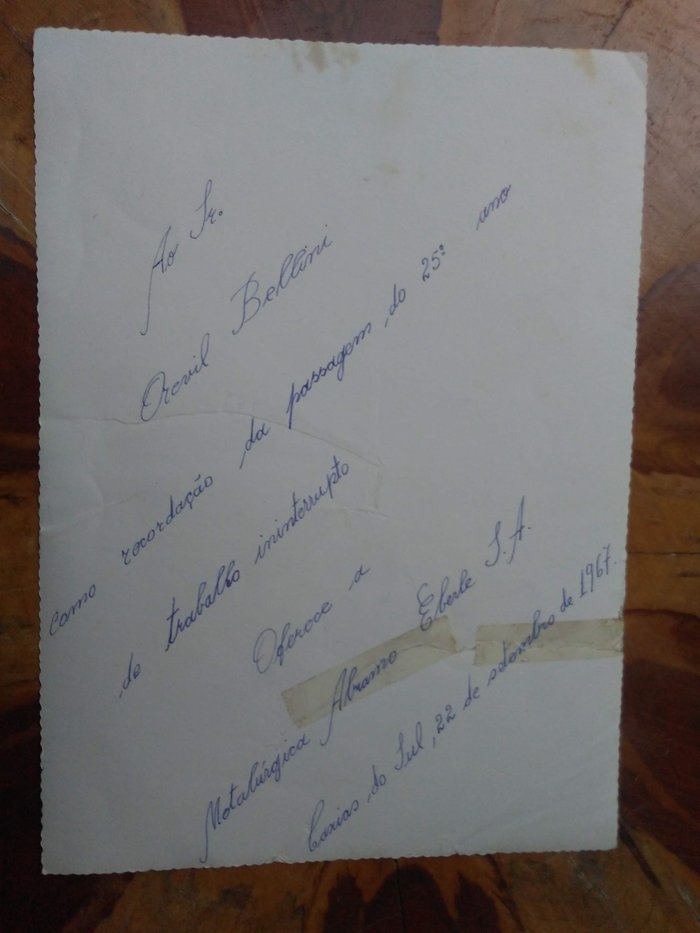 Ao Sr.
Orevil Bellini
como recordação da passagem do 25º ano
de trabalho ininterrupto
Oferece a
Metalúrgica Abramo Eberle S.A.
Caxias do Sul, 22 de setembro de 1967.